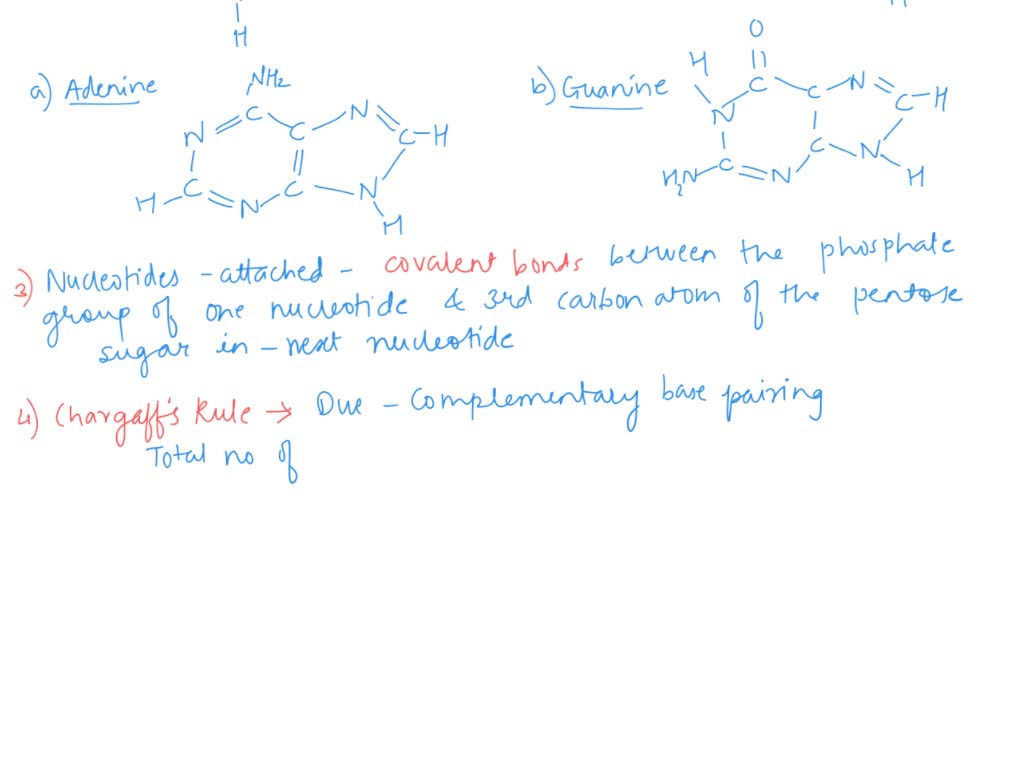 H
a) Adenine
NH2
N C C N C-H
H C N C N
H
b) Guanine
O
H
N C C N C-H
H2N C N C N
H
3) Nucleotides - attached - covalent bonds between the phosphate
group of one nucleotide & 3rd carbon atom of the pentose
sugar in - next nucleotide
4) Chargaff's Rule → Due - Complementary base pairing
Total no of